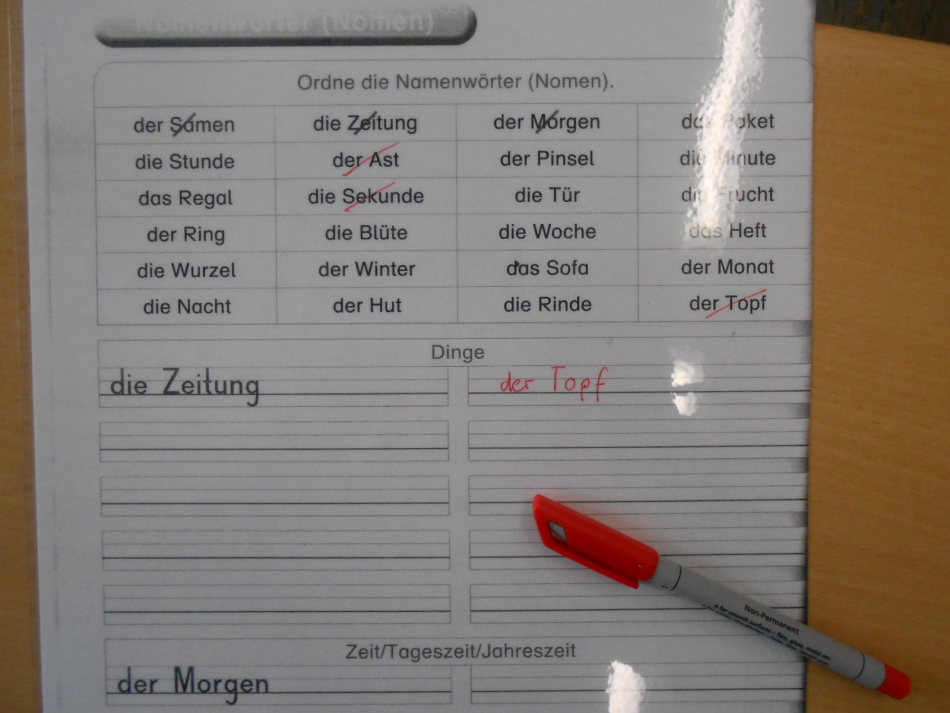 Namenwörter (Nomen)
Ordne die Namenwörter (Nomen).
der Samen die Zeitung der Morgen das Paket
die Stunde der Ast der Pinsel die Minute
das Regal die Sekunde die Tür die Frucht
der Ring die Blüte die Woche das Heft
die Wurzel der Winter das Sofa der Monat
die Nacht der Hut die Rinde der Topf
Dinge
die Zeitung der Topf
Zeit/Tageszeit/Jahreszeit
der Morgen
Non-Permanent